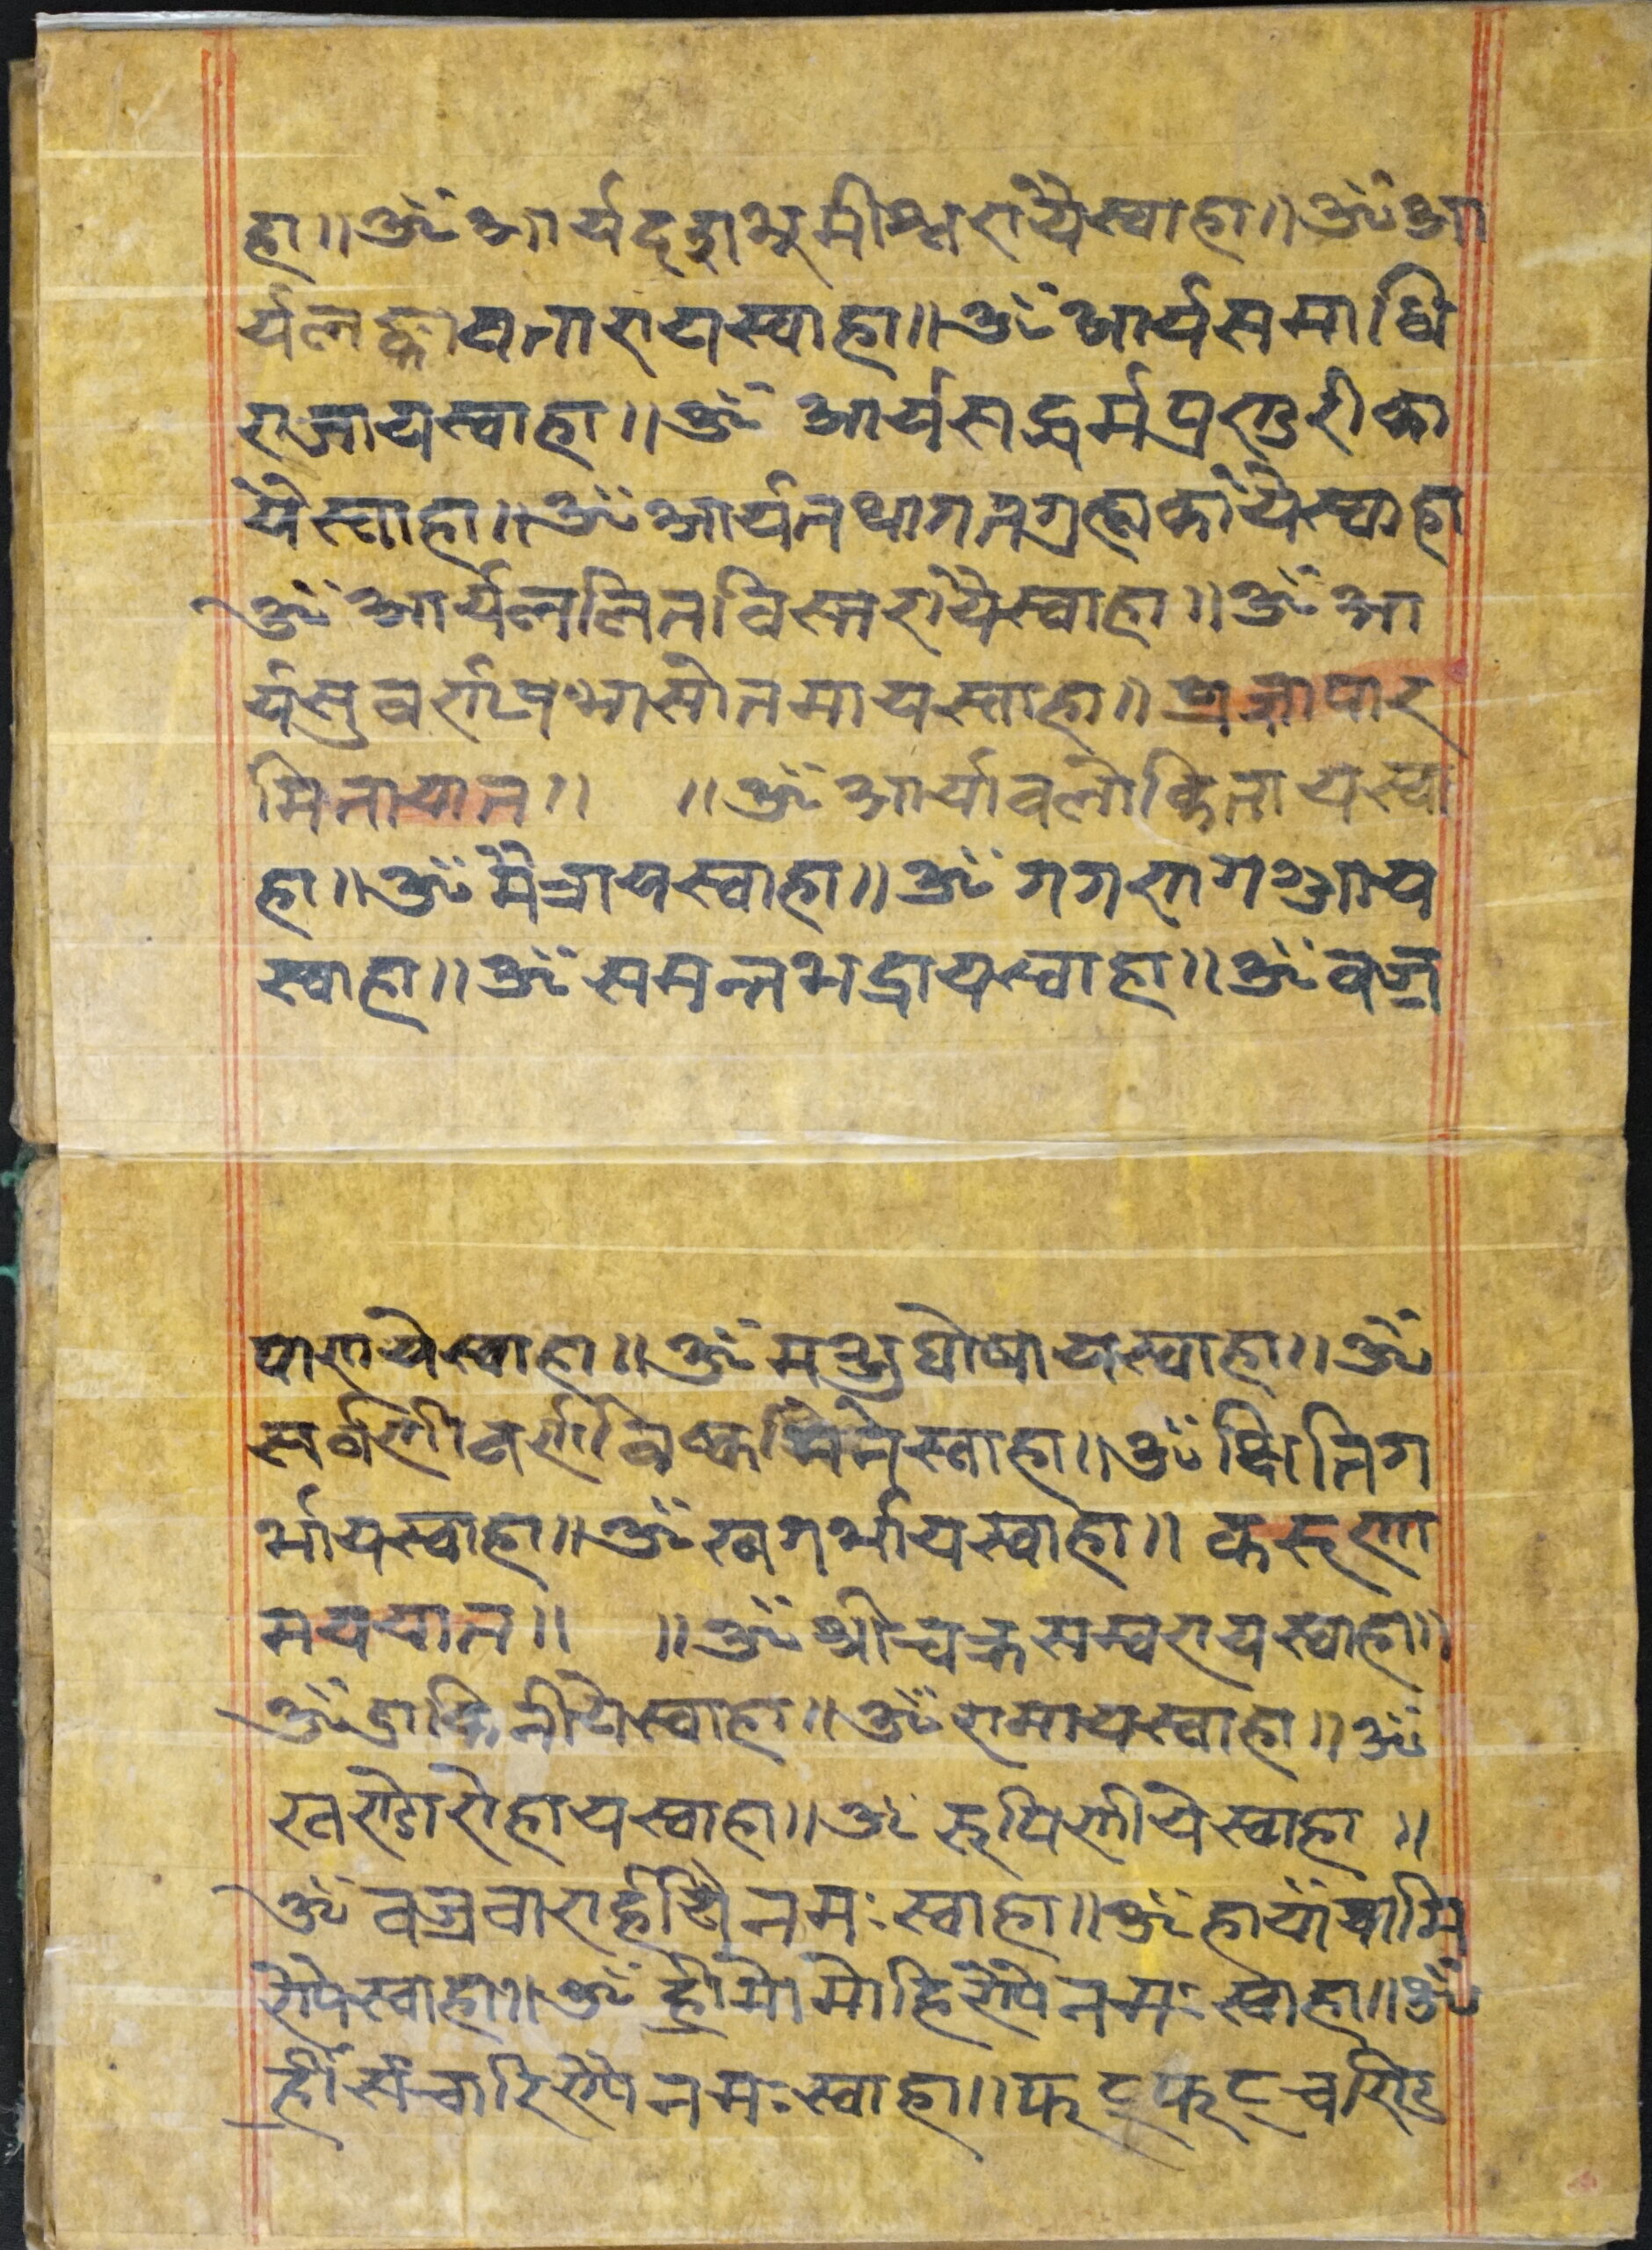 हा॥ॐआर्यदशभूमीश्वरायैस्वाहा॥ॐआ
र्यलङ्कावतारायस्वाहा॥ॐआर्यसमाधि
राजायस्वाहा॥ॐआर्यसद्धर्मपुण्डरीका
यैस्वाहा॥ॐआर्यतथागतगुह्यकायैस्वाहा
ॐआर्यललितविस्तरायैस्वाहा॥ॐआ
र्यसुवर्णप्रभासोतमायस्वाहा॥प्रज्ञापार
मितायान॥ ॥ॐआर्यावलोकितायस्वा
हा॥ॐमैत्रायस्वाहा॥ॐगगणगञ्जाय
स्वाहा॥ॐसमन्तभद्रायस्वाहा॥ॐवज्र
पाणयेस्वाहा॥ॐमञ्जुघोषायस्वाहा॥ॐ
सर्वणीवर्णविष्कंभिनेस्वाहा॥ॐक्षितिग
र्भायस्वाहा॥ॐखगर्भायस्वाहा॥करूणा
मययान॥ ॥ॐश्रीचक्रसम्वरायस्वाहा॥
ॐडाकिनीयेस्वाहा॥ॐरामायस्वाहा॥ॐ
स्वाहा॥ॐरूपिणीयेस्वाहा॥
ॐवज्रवाराहीयैनमःस्वाहा॥ॐहायाँयामि
ण्येस्वाहा॥ॐह्रीमोमोहिण्यैनमःस्वाहा॥ॐ
ह्रींसंचारिण्यैनमःस्वाहा॥फट्फट्चण्डि